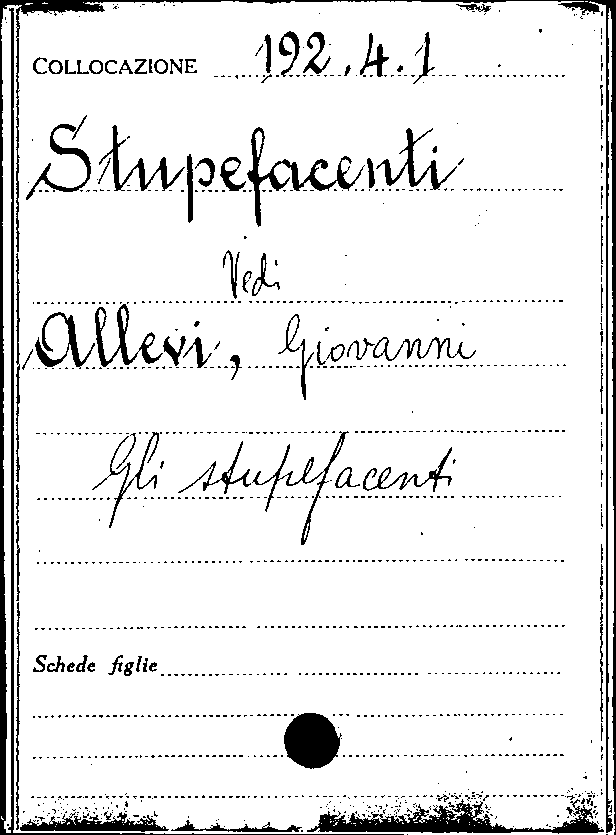 COLLOCAZIONE 192.4.1
Stupefacenti
Vedi
Allevi, Giovanni
Gli stupefacenti
Schede figlie